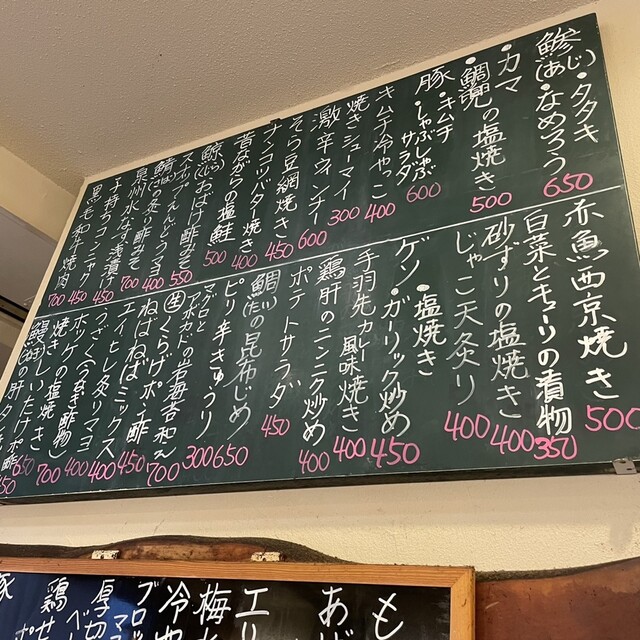 鯵(あじ)・タタキ
・なめろう 650
・カマ
・鯛兜の塩焼き 500
豚・キムチ
・しゃぶしゃぶサラダ 600
キムチ冷やっこ 400
焼きシューマイ 300
激辛ウィンナー 600
そら豆網焼き 450
ナンコツバター焼き 400
昔ながらの塩鮭 500
鯨(くじら)おばけ酢みそ 550
スナップえんどうマヨ 400
鯖(さば)へしこ
泉州水なす浅漬け 450
子持ちコンニャク 450
黒毛和牛焼肉 700
赤魚西京焼き 500
白菜とキューリの漬物 350
砂ずりの塩焼き 400
じゃこ天炙り 400
ゲソ・塩焼き
・ガーリック炒め 450
手羽先カレー風味焼き 400
鶏肝のニンニク炒め 400
ポテートサラダ 450
鯛(たい)の昆布じめ 650
ピリ辛きゅうり 300
マグロとアボカドの岩海苔和え 700
生くらげポン酢 450
ねばねばミックス 400
エイヒレ炙りマヨ 400
うざく(うなぎ酢物) 700
ホッケの塩焼き 650
焼きしいたけポン酢
鰻(うなぎ)の肝
も
あ
エ
梅
冷
ブロッ
厚切
鶏せ
豚